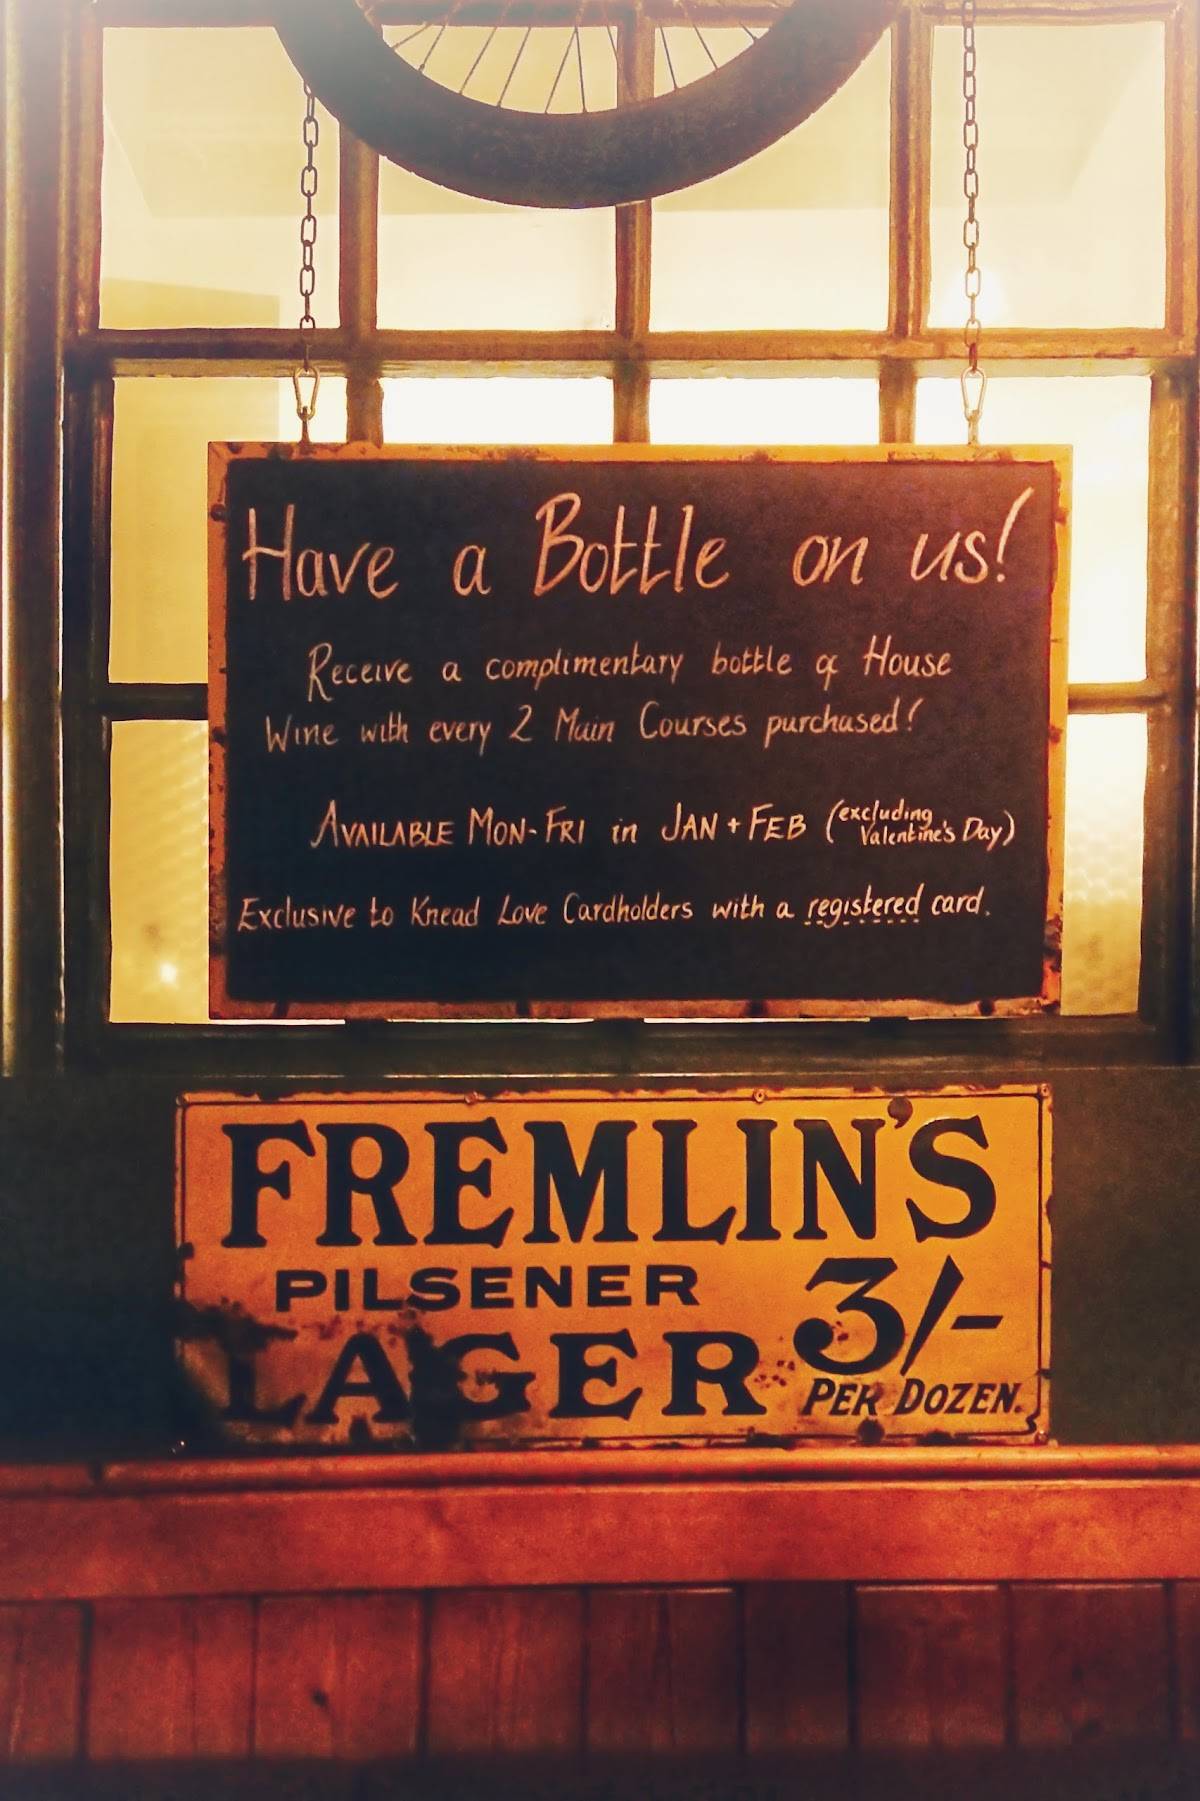 Have a Bottle on us!
Receive a complimentary bottle of House
Wine with every 2 Main Courses purchased!
AVAILABLE MON-FRI in JAN + FEB (excluding Valentine's Day)
Exclusive to Knead Love Cardholders with a registered card.
FREMLIN'S
PILSENER
LAGER
3/-
PER DOZEN.